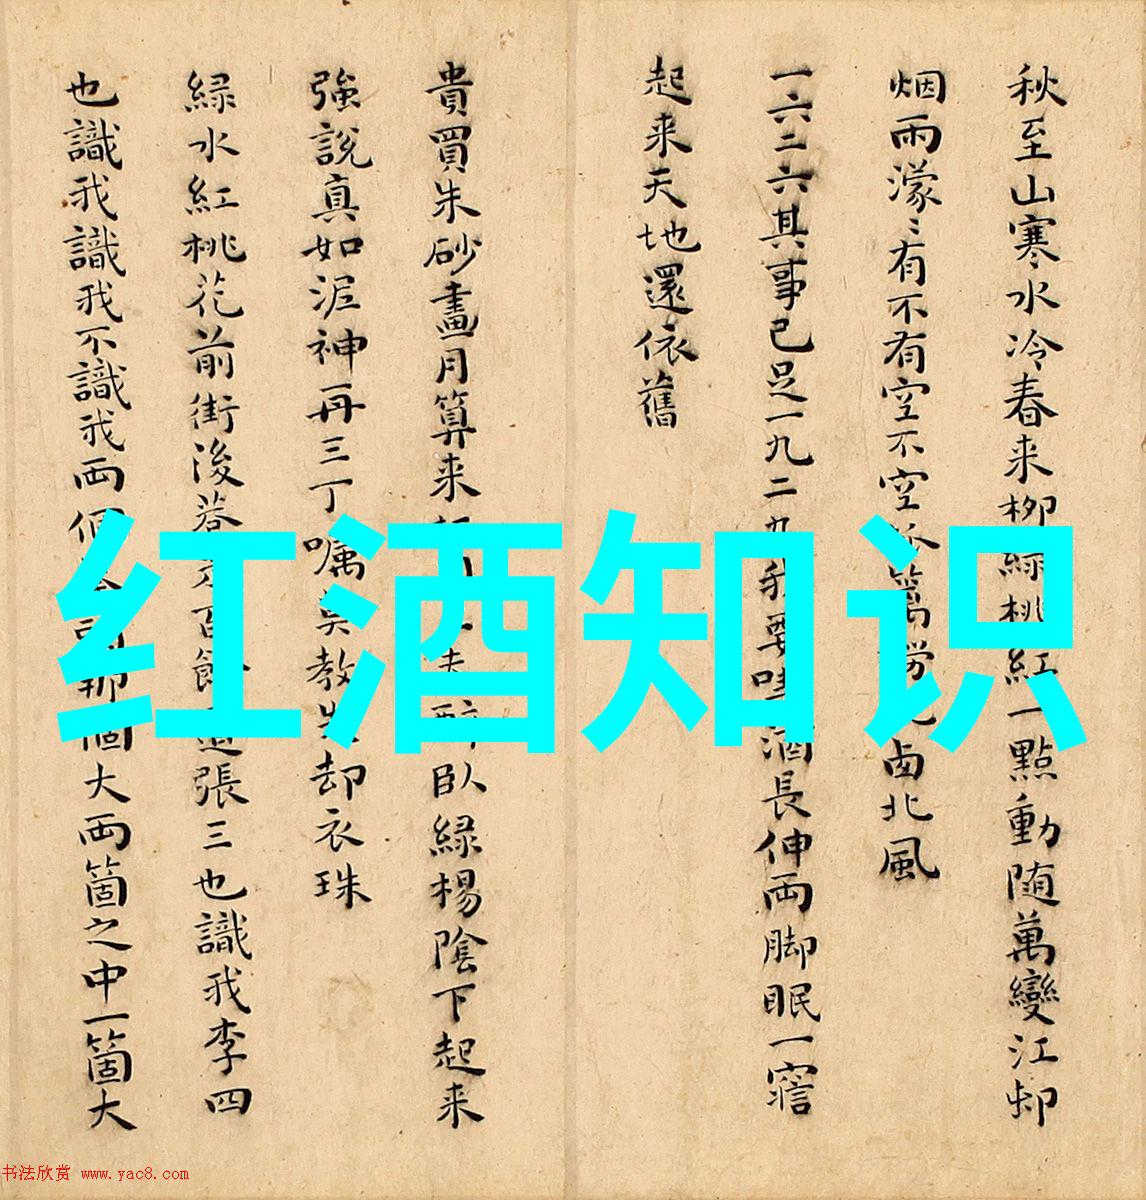 秋至山寒水冷春来柳綠桃紅一點動随萬變江邨
烟雨濛〻有不有空不空西北風
一六二六其事已足一九二九我要酒長伸両脚眠一寤
起来天地還依舊
貴買朱砂畫月算来醉臥綠楊陰下起来
強說真如泥神再三丁嘱莫教失却衣珠
綠水紅桃花前街後巷走百餘遭張三也識我李四
也識我識我不識我両個那個大両箇之中一箇大
红酒知识
书法欣赏 www.yac8.com